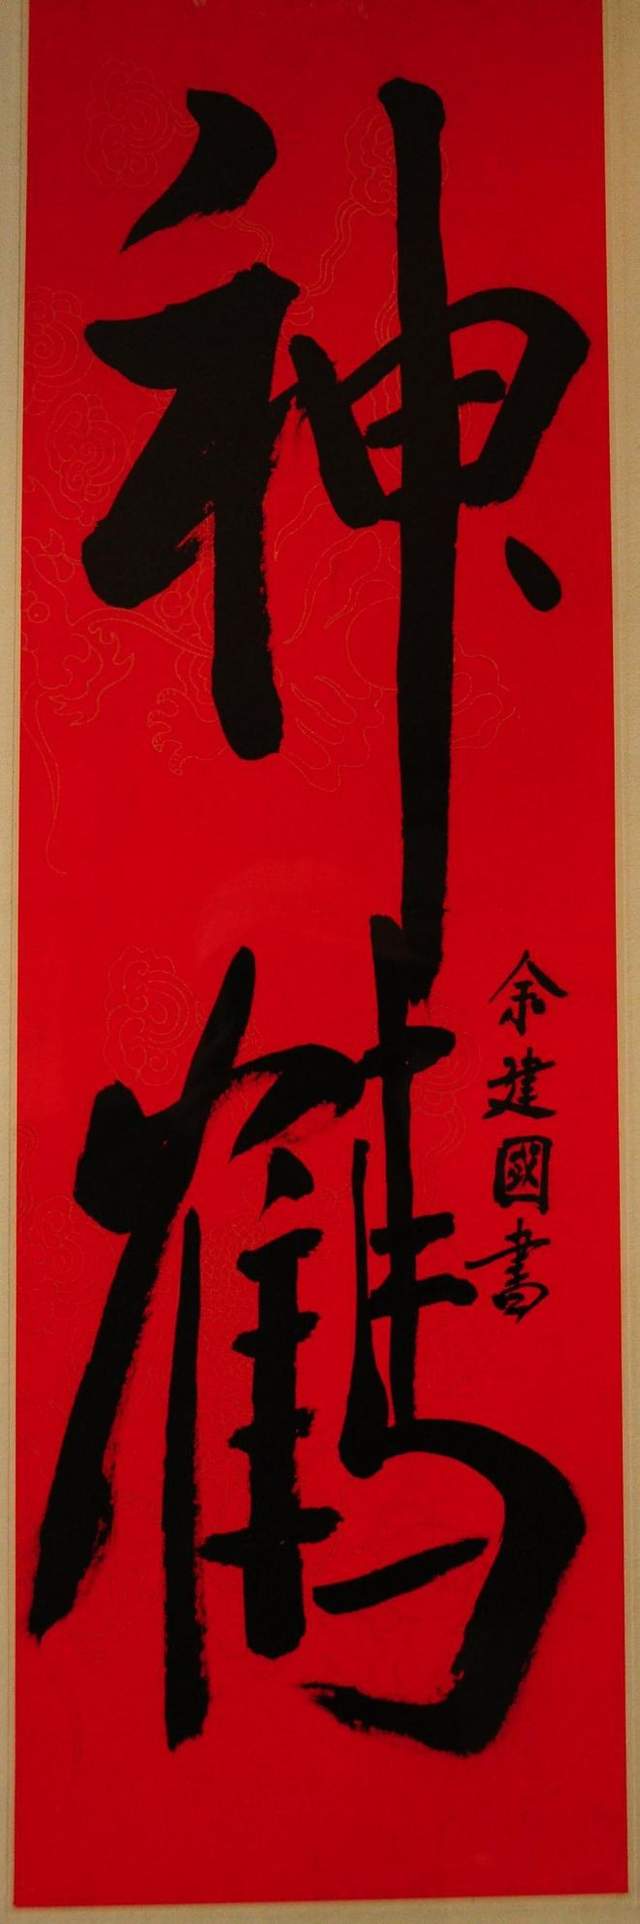 神鶴
余建國書